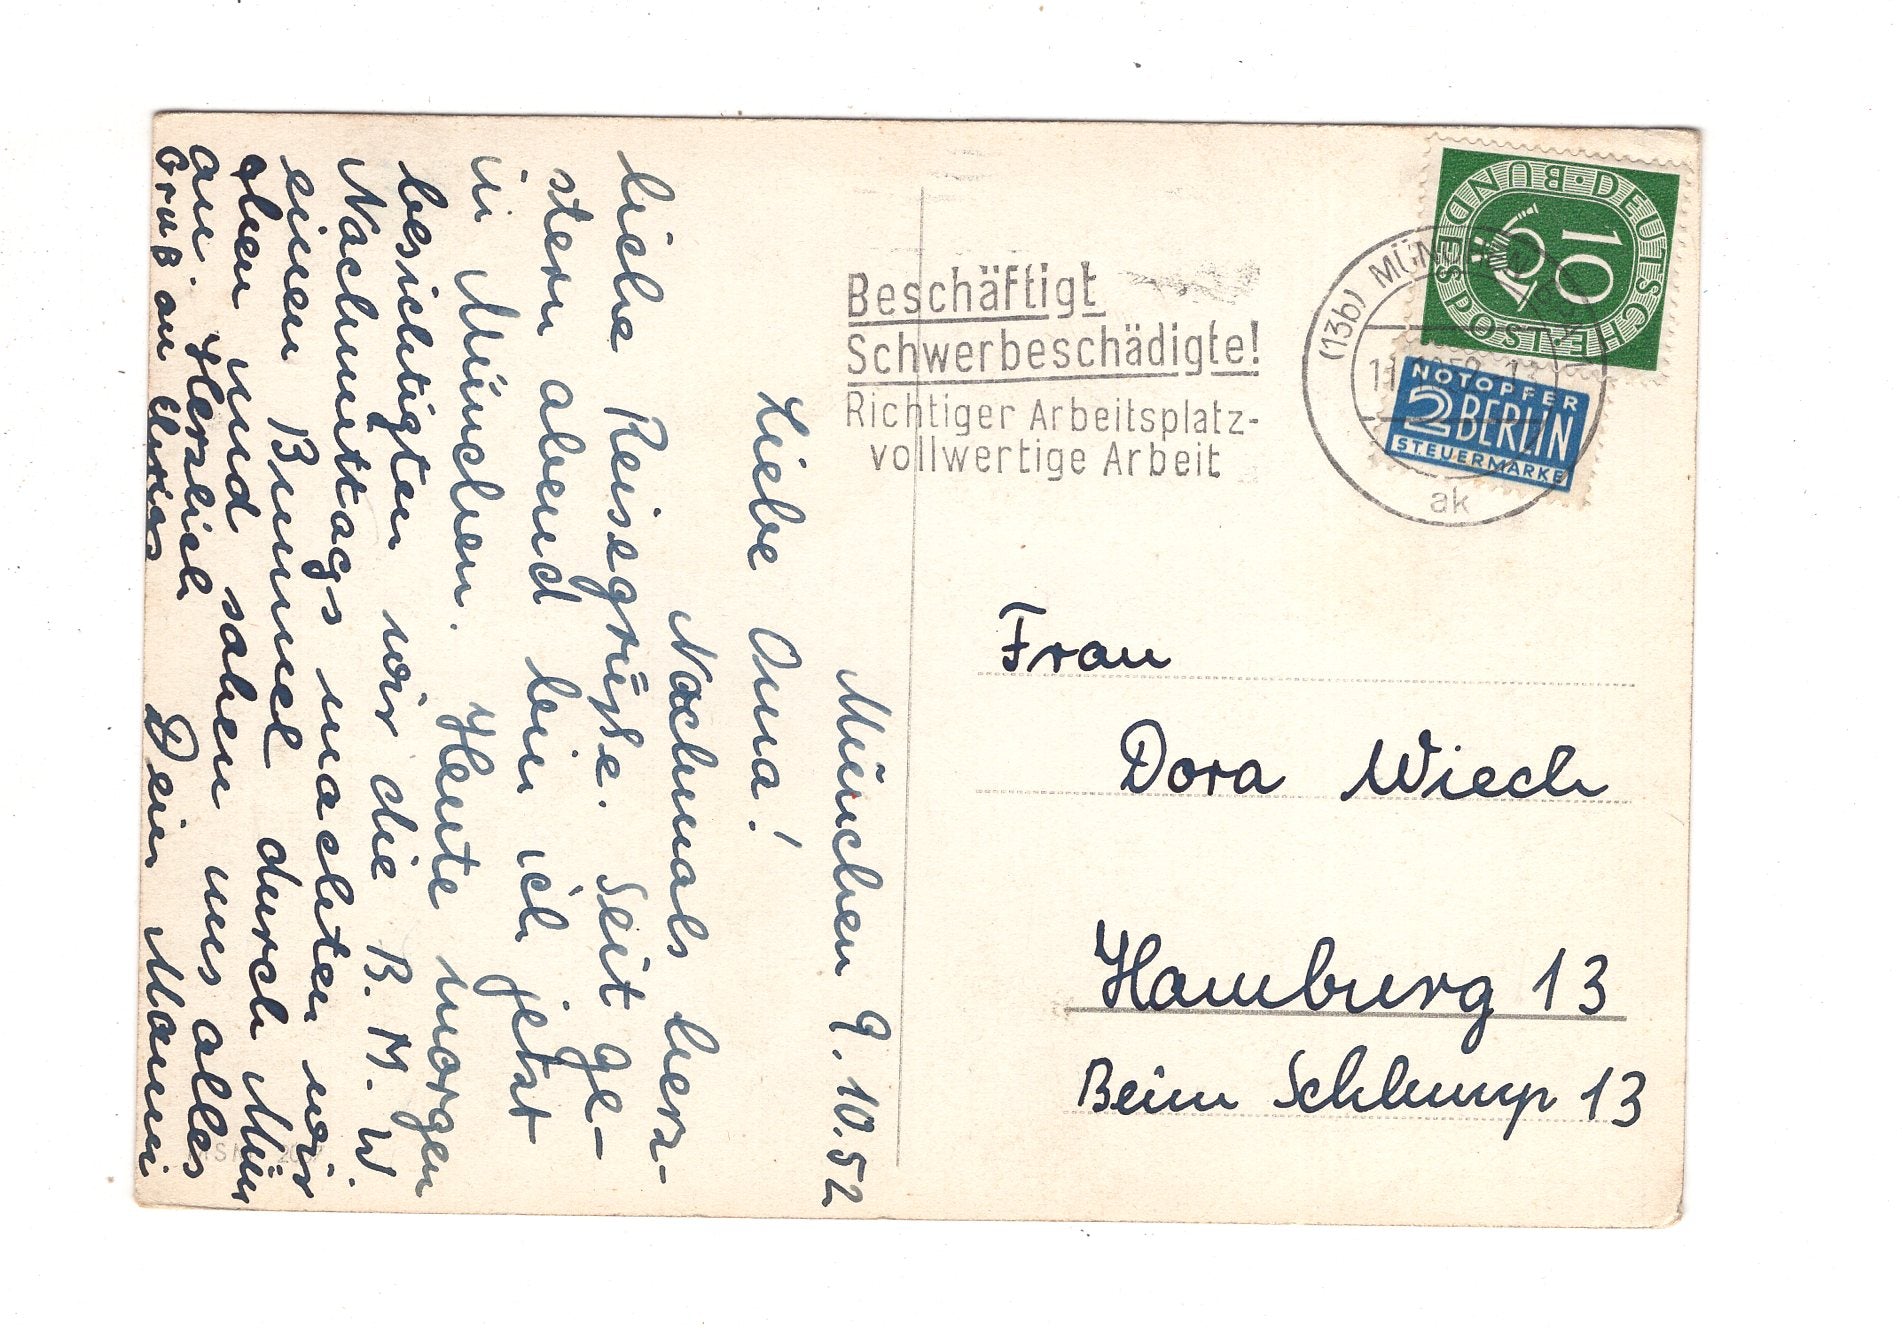 München 9.10.52
Liebe Oma!
Nochmals herz-
liche Reisegrüße. Seit ge-
stern abend bin ich jetzt
in München. Heute morgen
besichtigten wir die B.M.W.
Nachmittags machten wir
einen Bummel durch Mün-
chen und sahen uns alles
an. Herzlich
Gruß an
Dein Manni
Beschäftigt
Schwerbeschädigte!
Richtiger Arbeitsplatz-
vollwertige Arbeit
(13b) MÜNCHEN
ak
DEUTSCHE BUNDESPOST
10
NOTOPFER
2 BERLIN
STEUERMARKE
Frau
Dora Wiech
Hamburg 13
Beim Schlump 13